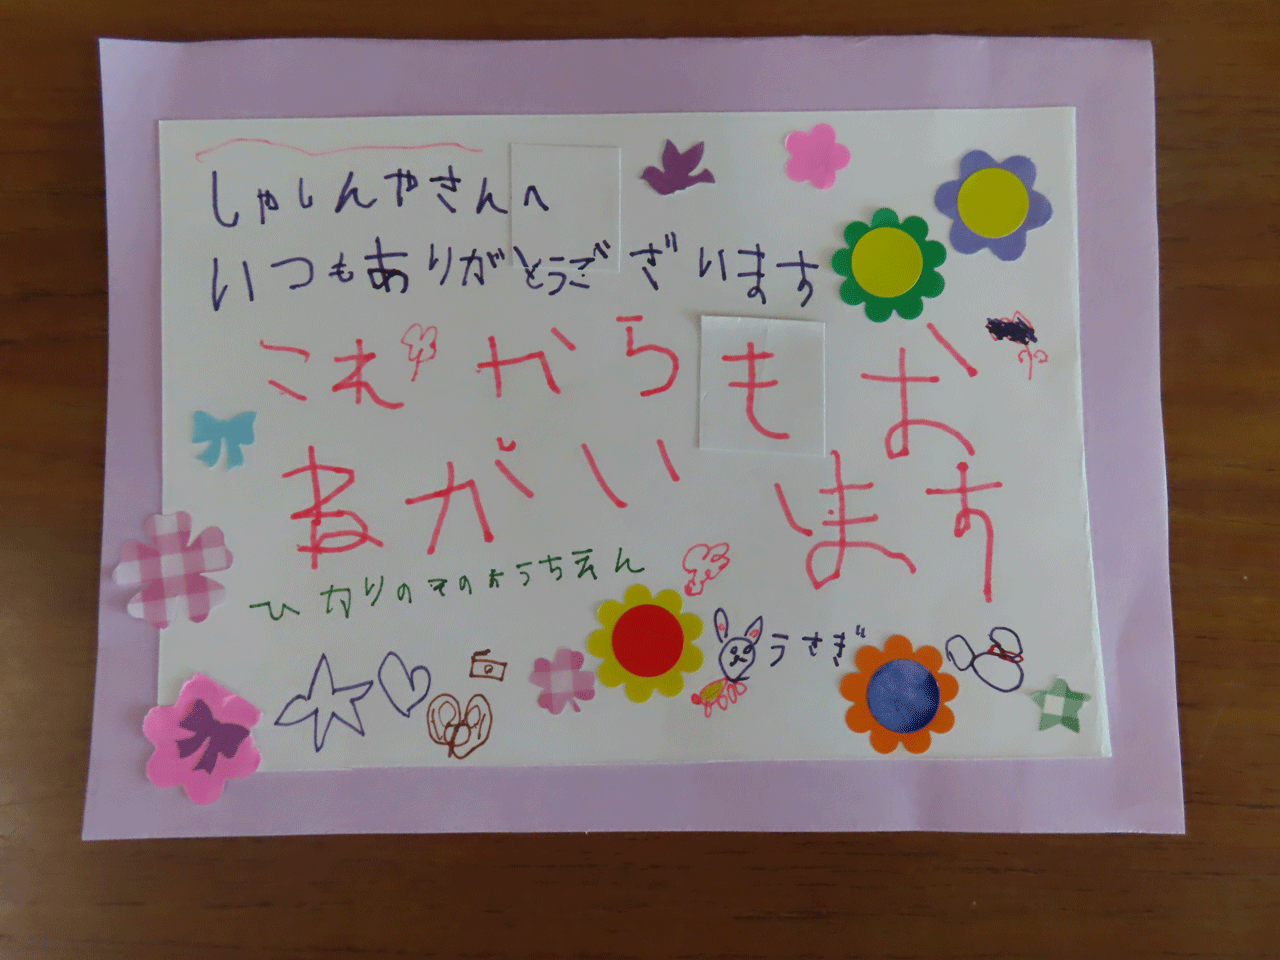 しゃしんやさんへ
いつもありがとうございます
これからもお
ねがいします
ひかりのそのようちえん
うさぎ